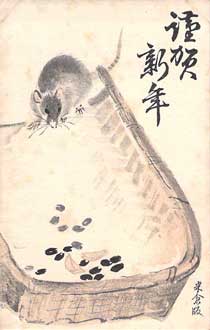 謹賀
新年
米倉版